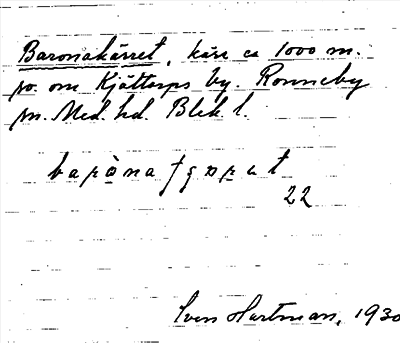 Baronakärret, kärr ca 1000 m.
so. om Kjättorps by Ronneby
sn. Med. hd. Blek. l.
22
Sven Hartman, 1930